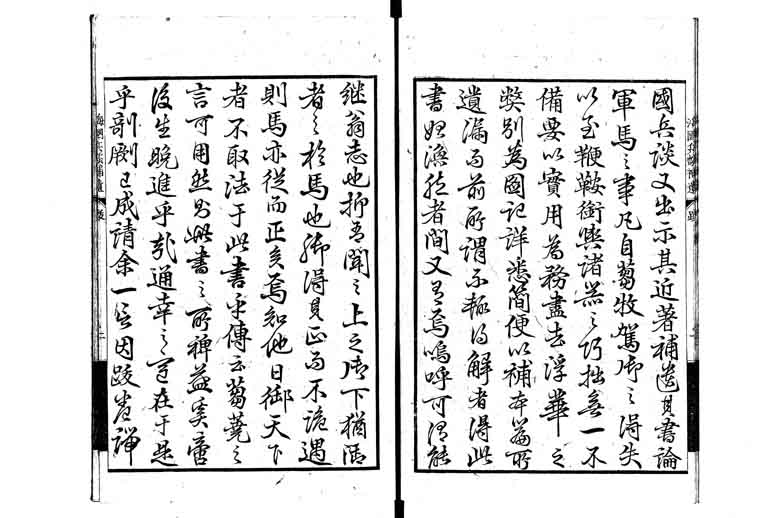 國兵談又出示其近著補遺其書論
軍馬之事凡自芻牧駕御之得失
以至鞭鞍銜輿諸器之巧拙無一不
備要以實用為務盡去浮華之
弊別為圖記詳悉簡便以補本篇所
遺漏而前所謂不輙得解者得此
書如渙然者間又有焉嗚呼可謂能
継翁志也抑吾聞之上之御下猶
者之於馬也御得其正而不詭遇
則馬亦従而正矣焉知他日御天下
者不取法于此書乎傳云芻蕘之
言可用然則此書之所裨益奚啻
後生晩進乎哉通幸之在于是
乎剞劂已成請余一言因跋卷
海國兵談補遺 跋
海國兵談補遺 跋 二